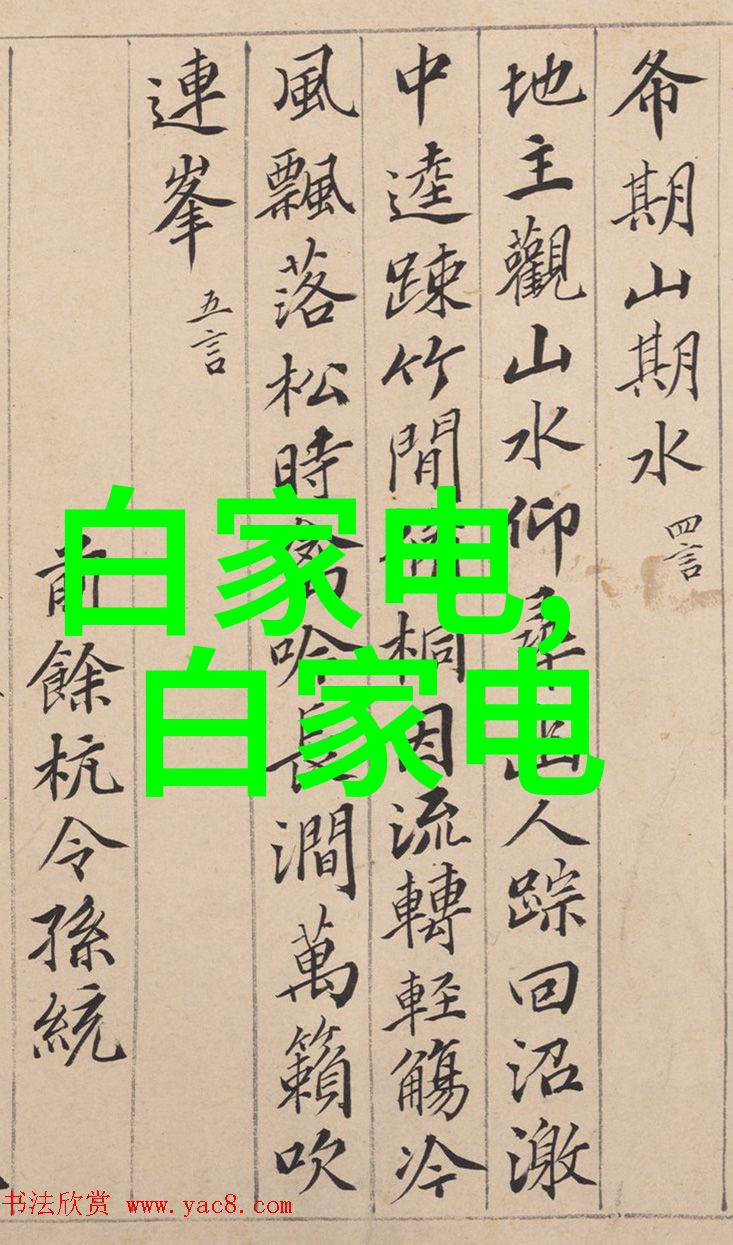 希期山期水 四言
地主觀山水仰尋幽人踪回沼激
中逵踈竹間脩桐因流轉輕觴冷
風飄落松時禽吟長澗萬籟吹
連峯 五言
前餘杭令孫統
白家电,
白家电
书法欣赏 www.yac8.com